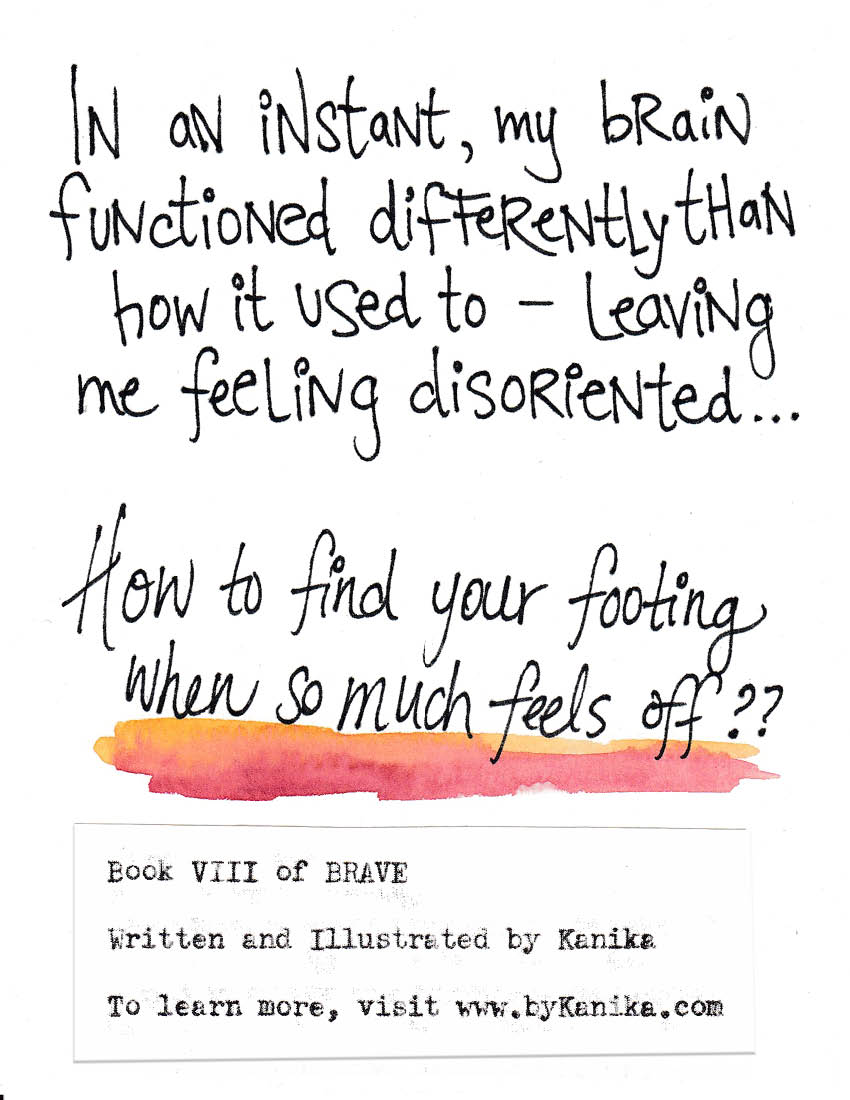 In an instant, my brain
functioned differently than
how it used to – leaving
me feeling disoriented...
How to find your footing
when so much feels off??
Book VIII of BRAVE
Written and Illustrated by Kanika
To learn more, visit www.byKanika.com